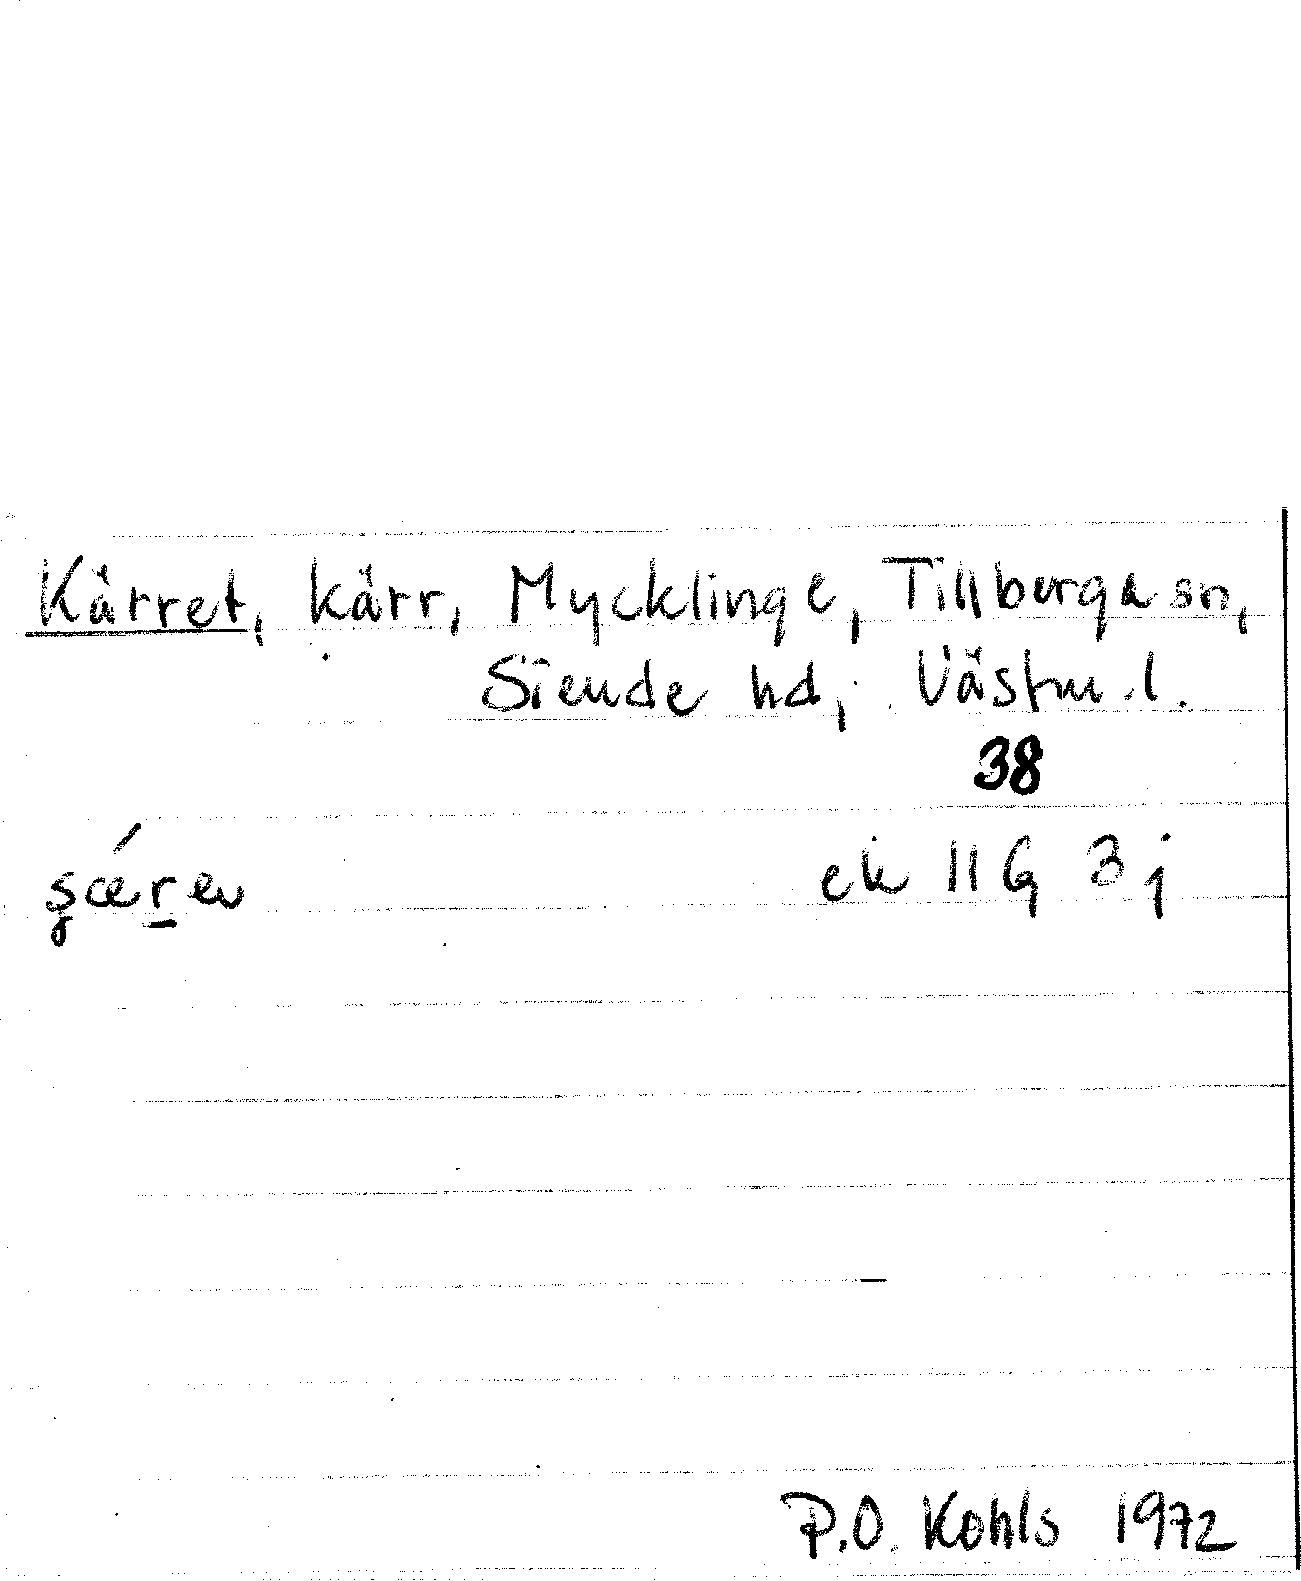 Kärret, kärr, Mycklinge, Tillberga sn,
Siende hd, Västm. l.
38
ek 11G 3j
P.O. Kohls 1972